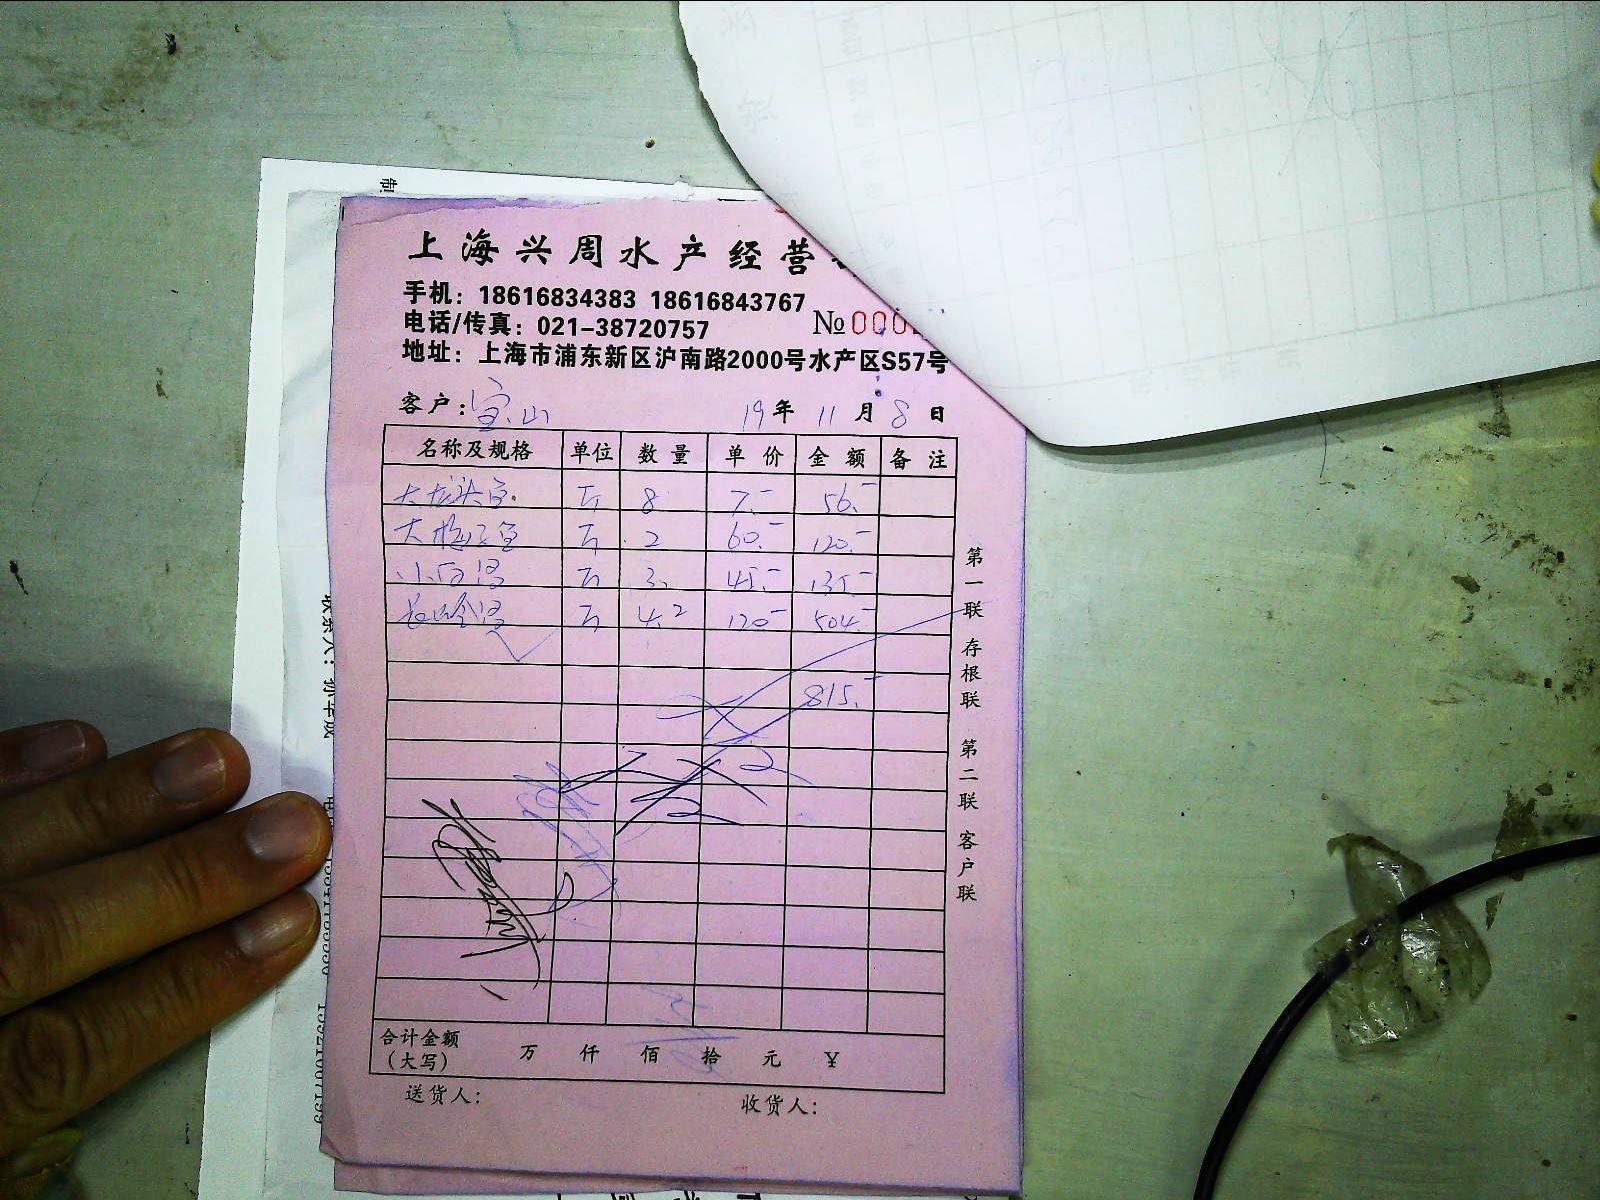 上海兴周水产经营
手机：18616834383 18616843767
电话/传真：021-38720757
№000
地址：上海市浦东新区沪南路2000号水产区S57号
客户：宝山 19年 11月 8日
名称及规格 单位 数量 单价 金额 备注
大龙头鱼 斤 8 7.- 56.-
大梅子鱼 斤 2 60.- 120.-
小白 斤 3. 45.- 135.-
斤 4.2 120- 504.-
815.-
合计金额
（大写） 万 仟 佰 拾 元 ￥
送货人： 收货人：
第一联 存根联 第二联 客户联